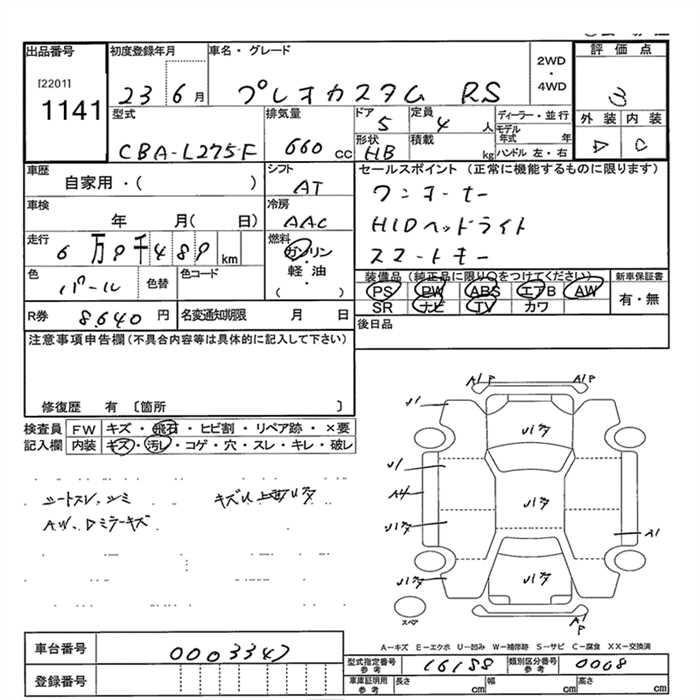 出品番号
[2201]
1141
初度登録年月
23 6月
車名・グレード
プレオカスタム RS
2WD
・
4WD
評価点
3
外装 内装
D C
型式
CBA-L275F
排気量
660 cc
ドア
5
定員
4 人
形状
HB
積載
kg
ディーラー・並行
モデル年式 年
ハンドル 左・右
車歴
自家用・( )
シフト
AT
車検
年 月( 日)
冷房
AAC
走行
6万9千489 km
燃料
ガソリン
・
軽・油
( )
色
パール
色替
色コード
R券 8,640 円
名変通知期限 月 日
セールスポイント (正常に機能するものに限ります)
ワンオーナー
HIDヘッドライト
スマートキー
装備品(純正品に限り○をつけてください)
PS PW ABS エアB AW
SR ナビ TV カワ
新車保証書
有・無
後日品
注意事項申告欄(不具合内容等は具体的に記入して下さい)
修復歴 有 〔箇所 〕
検査員記入欄
FW キズ・飛石・ヒビ割・リペア跡・×要
内装 キズ・汚レ・コゲ・穴・スレ・キレ・破レ
シートスレ、シミ
AW、Dミラーキズ
A1P A1P
U1
U1
A4
A1
A1P
スペア
A-キズ E-エクボ U-凹み W-補修跡 S-サビ C-腐食 XX-交換済
車台番号 0003347
登録番号
型式指定番号 参考 16188
類別区分番号 参考 0008
車庫証明用 参考
長さ cm 幅 cm 高さ cm